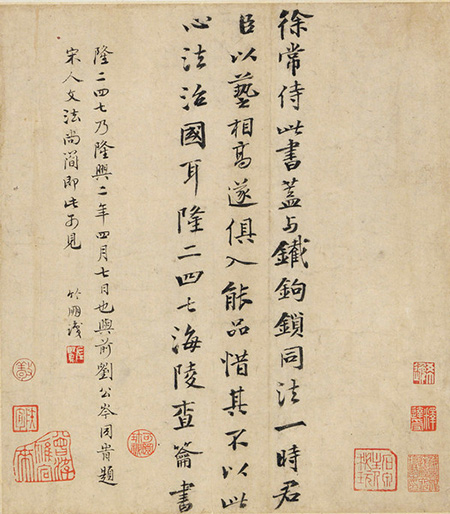 徐常侍此書蓋与鐵鉤鎖同法一時君
臣以藝相高遂俱入能品惜其不以此
心法治國耳隆二四七海陵查籥書
隆二四七乃隆興二年四月七日也與前劉公岑同題
宋人文法尚簡即此可見